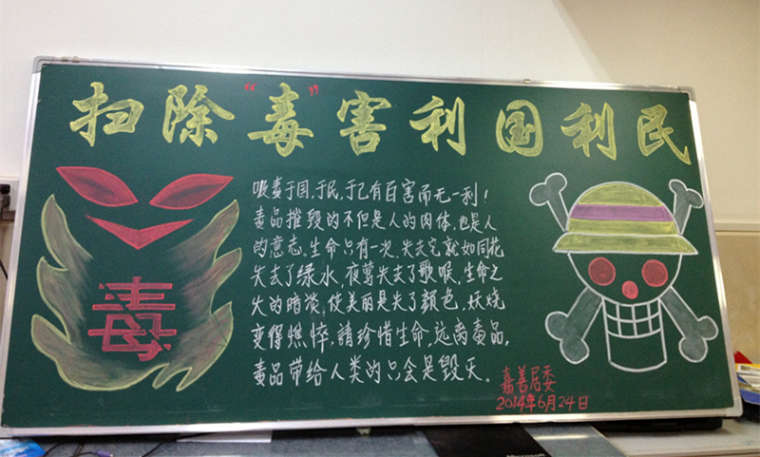 扫除“毒”害利国利民
吸毒于国、于民、于己有百害而无一利！
毒品摧毁的不但是人的肉体，也是人
的意志。生命只有一次，失去它就如同花
失去了绿水，夜莺失去了歌喉，生命之
火的暗淡，使美丽是失了颜色，妖娆
变得憔悴，請珍惜生命，远离毒品，
毒品带给人类的只会是毁灭。
毒
嘉善居委
2014年6月24日